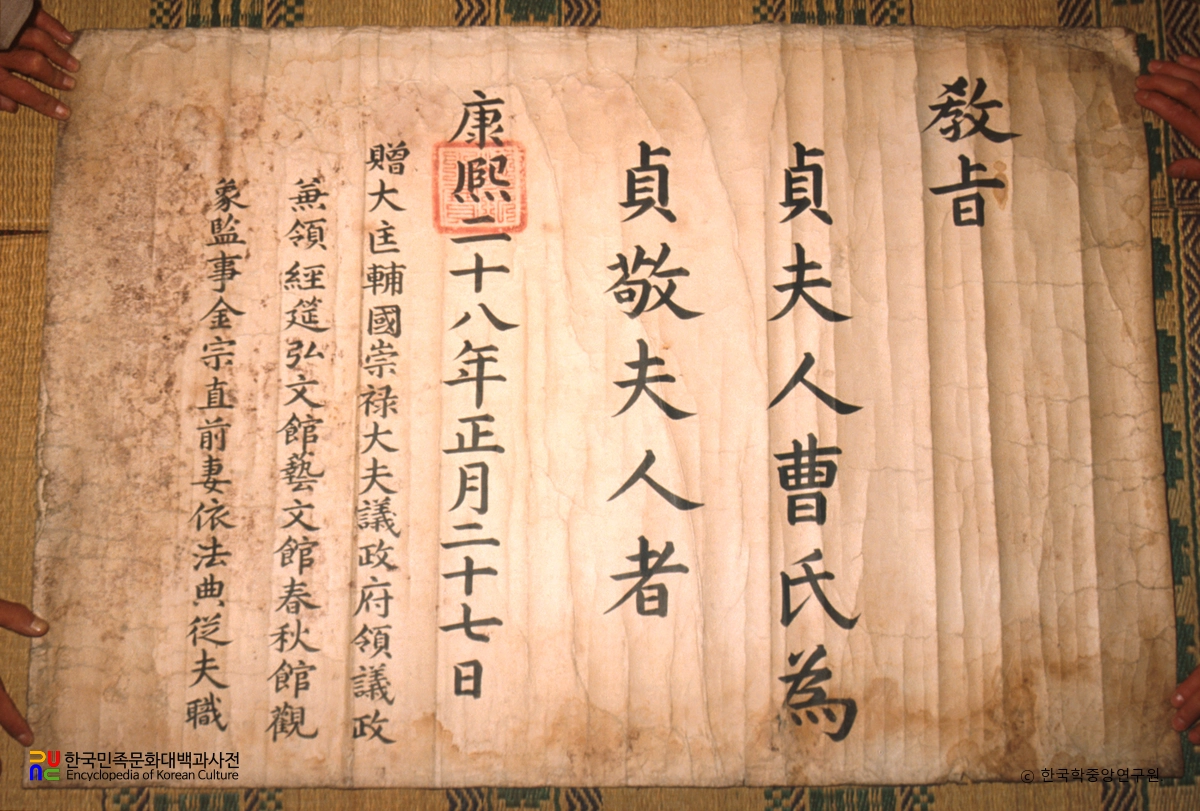 教旨
貞夫人曹氏為
貞敬夫人者
康熙二十八年正月二十七日
贈大匡輔國崇禄大夫議政府領議政
兼領經筵弘文館藝文館春秋館觀
象監事金宗直前妻依法典從夫職
한국민족문화대백과사전
Encyclopedia of Korean Culture
© 한국학중앙연구원